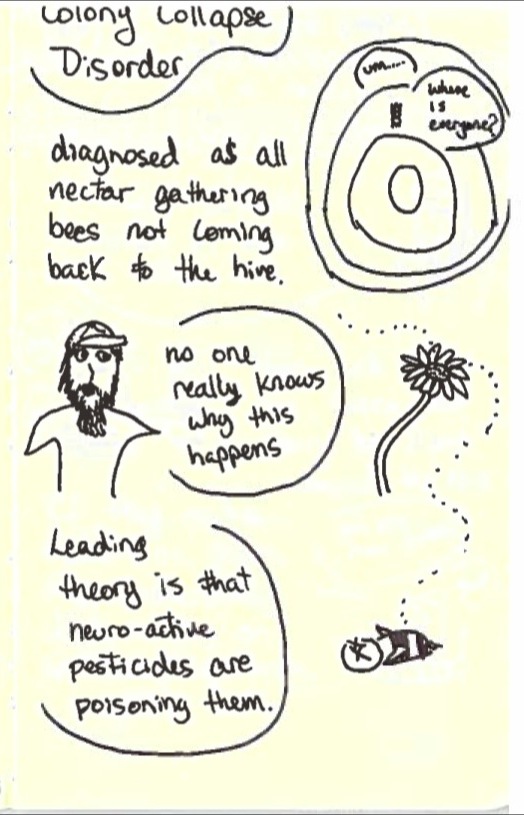 Colony Collapse
Disorder
diagnosed as all
nectar gathering
bees not coming
back to the hive.
um.....
where
is
everyone?
no one
really knows
why this
happens
Leading
theory is that
neuro-active
pesticides are
poisoning them.